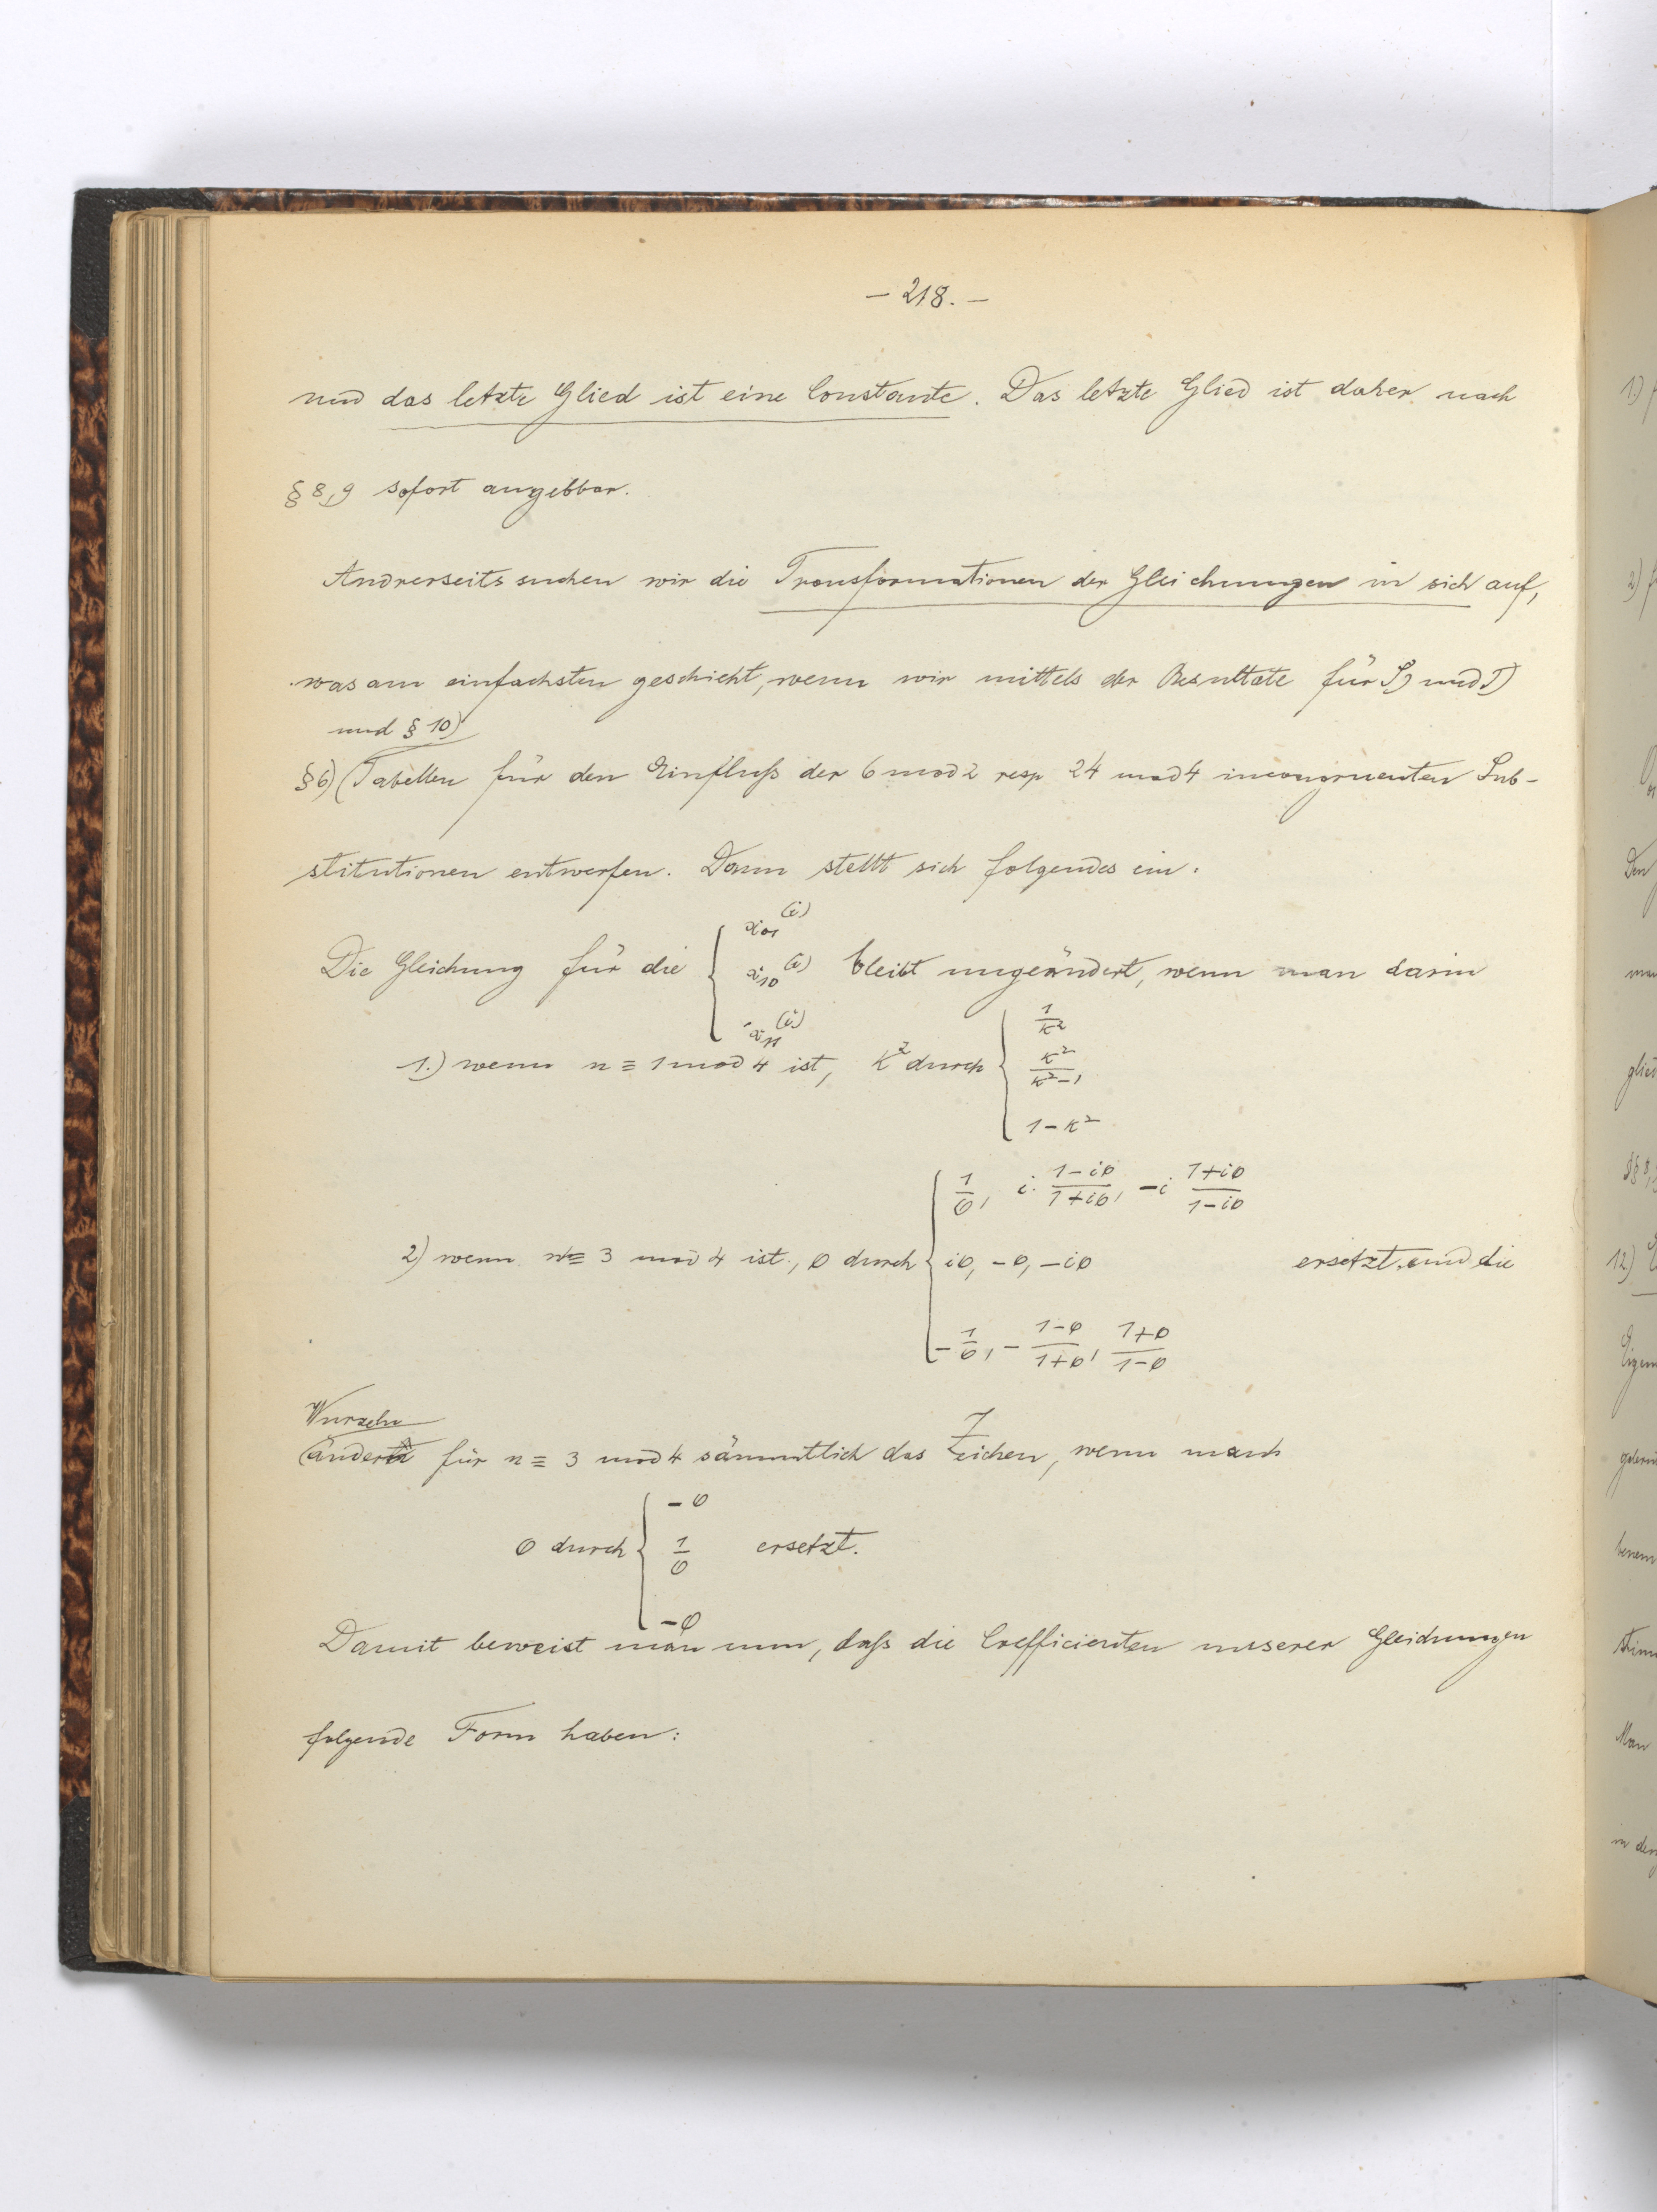 – 218. –
und das letzte Glied ist eine Constante. Das letzte Glied ist daher nach
§ 8, 9 sofort angebbar.
Andrerseits suchen wir die Transformationen der Gleichungen in sich auf,
was am einfachsten geschieht, wenn wir mittels der Resultate für S) und T)
und § 10)
§ 6) (Tabellen für den Einfluß der 6 mod 2 resp 24 mod 4 incongruenten Sub-
stitutionen entwerfen. Dann stellt sich folgendes ein:
Die Gleichung für die { x₀₁⁽ⁱ⁾ x₁₀⁽ⁱ⁾ x₁₁⁽ⁱ⁾ bleibt ungeändert, wenn man darin
1.) wenn n ≡ 1 mod 4 ist, k² durch { 1/k² k²/(k²-1) 1-k²
2) wenn n ≡ 3 mod 4 ist, φ durch { 1/φ, i·(1-iφ)/(1+iφ), -i (1+iφ)/(1-iφ)
iφ, -φ, -iφ ersetzt, und die
-1/φ, -(1-φ)/(1+φ), (1+φ)/(1-φ)
Wurzeln
ändern für n ≡ 3 mod 4 sämmtlich das Zeichen, wenn man
φ durch { -φ 1/φ -φ ersetzt.
Damit beweist man nun, daß die Coefficienten unserer Gleichungen
folgende Form haben: